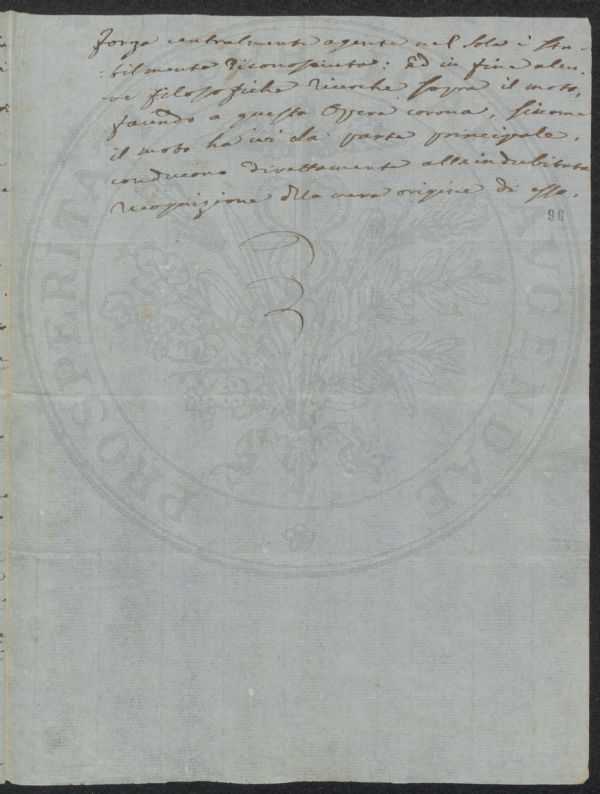 forza centralmente agente nel Sole è sta-
-bilmente riconosciuta: Ed in fine alcu-
ne filosofiche ricerche sopra il moto,
facendo a questa Opera corona, siccome
il moto ha ivi la parte principale,
conducono direttamente alla indubitata
ricognizione della vera origine di esso.
96
PROSPERITATI AVGENDAE